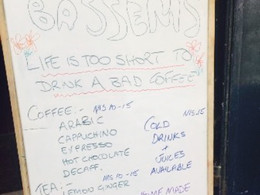 BASSEMS
LIFE IS TOO SHORT TO
DRINK A BAD COFFEE
COFFEE -
ARABIC
CAPPUCHINO
ESPRESSO
HOT CHOCOLATE
DECAFF.
TEA -
LEMOO GINGER
COLD
DRINKS
+
JUICES
AVAILABLE
HOME MADE